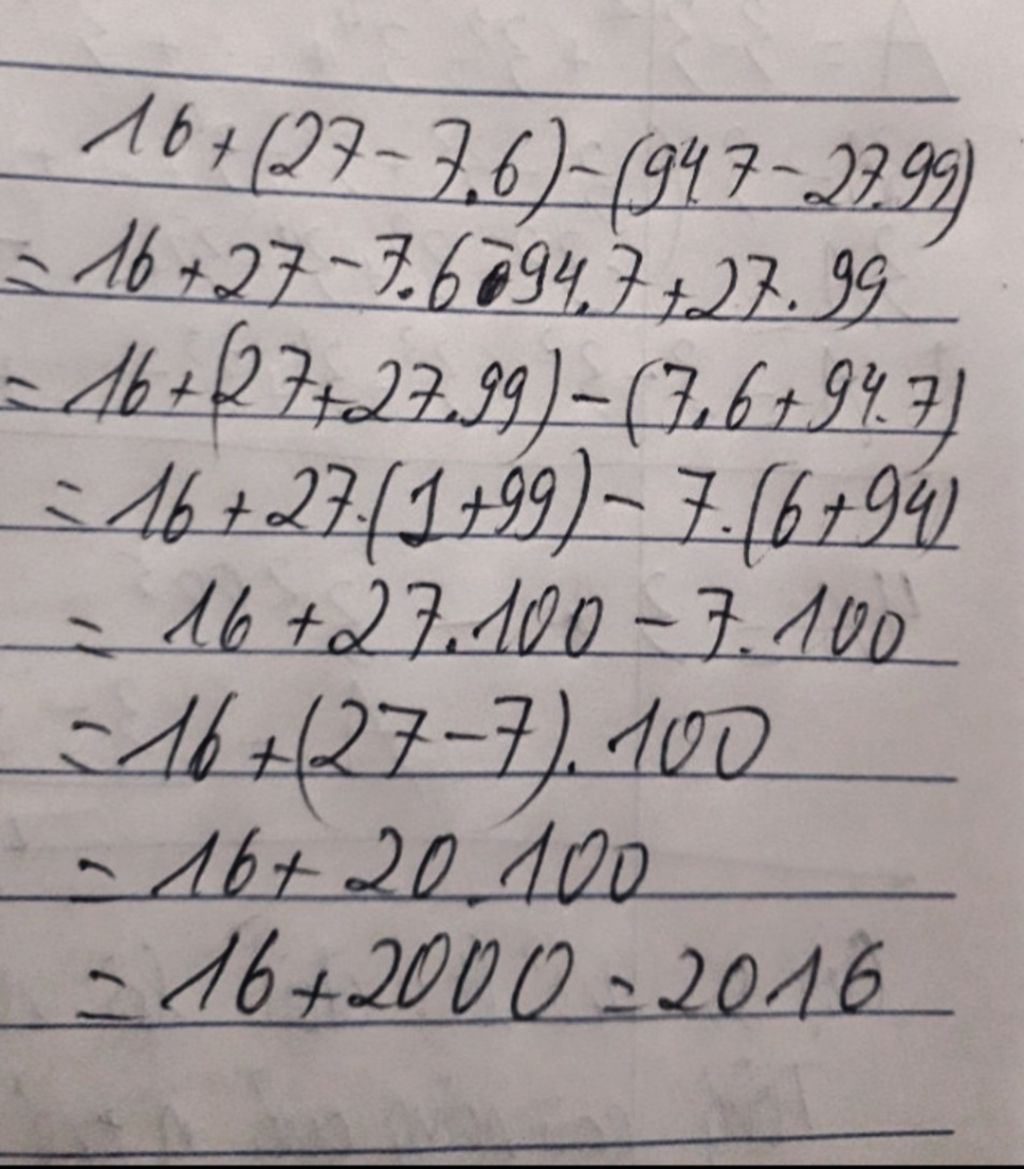 16+(27-7.6)-(94.7-27.99)
=16+27-7.6-94.7+27.99
=16+(27+27.99)-(7.6+94.7)
=16+27.(1+99)-7.(6+94)
=16+27.100-7.100
=16+(27-7).100
=16+20.100
=16+2000=2016